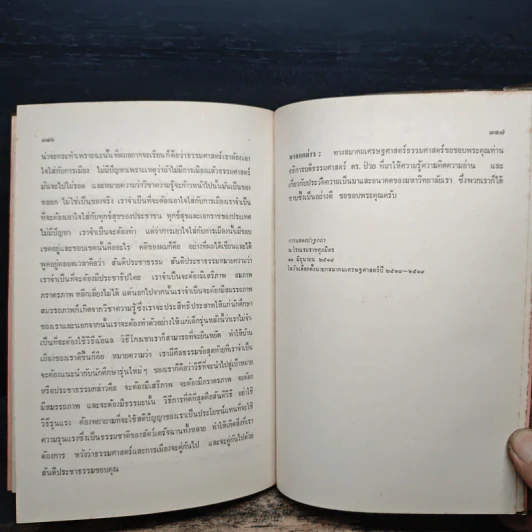 ๓๑๖
น่าจะกระทำเพราะฉะนั้นที่ผมอยากจะเรียนก็คือว่าธรรมศาสตร์เราต้องเอา
ใจใส่กับการเมือง ไม่มีปัญหาเพราะเหตุว่าถ้าไม่มีการเมืองแล้วธรรมศาสตร์
มันจะไปไม่รอด และหมายความว่าวิชาความรู้จะก้าวหน้าไปนั้นมันเป็นของ
หลอก ไม่ใช่เป็นของจริง เราจำเป็นที่จะต้องเอาใจใส่กับการเมืองเราจำเป็น
ที่จะต้องเอาใจใส่กับทุกข์สุขของประชาชน ทุกข์สุขและเอกราชของประเทศ
ไม่มีปัญหา เราจำเป็นจะต้องทำ แต่ว่าการเอาใจใส่กับการเมืองนั้นมีขอบ
เขตอยู่และขอบเขตนั้นคืออะไร คติของผมก็คือ อย่างที่ผมได้เขียนและได้
พูดอยู่ตลอดเวลาคือว่า สันติประชาธรรม สันติประชาธรรมหมายความว่า
เราจำเป็นที่จะต้องมีประชาธิปไตย เราจำเป็นจะต้องมีเสรีภาพ สมภาพ
ภราดรภาพ หลีกเลี่ยงไม่ได้ แต่นอกไปจากนั้นเราจำเป็นจะต้องมีสมรรถภาพ
สมรรถภาพก็เกิดจากวิชาความรู้ซึ่งเราจะประสิทธิ์ประสาทให้แก่นักศึกษา
ของเราและนอกจากนั้นเราจะต้องทำตัวอย่างให้แก่เด็กรุ่นหลังนี้ว่าเราไม่จำ
เป็นที่จะต้องใช้วิธีฉ้อฉล วิธีโกงเขาเราก็สามารถที่จะยืนหยัด ทำให้บ้าน
เมืองของเราดีขึ้นก็คือ หมายความว่า เรามีศีลธรรมข้อสุดท้ายที่เราจำเป็น
จะต้องแนะนำกับนักศึกษารุ่นใหม่ ๆ ของเราก็คือว่าวิธีที่จะนำไปสู่เป้าหมาย
หรือประชาธรรมกล่าวคือ จะต้องมีเสรีภาพ จะต้องมีภราดรภาพ จะต้อง
มีสมรรถภาพ และจะต้องมีธรรมะนั้น วิธีการที่ดีที่สุดคือสันติวิธี อย่าใช้
วิธีรุนแรง ต้องพยายามที่จะใช้สติปัญญาของเราเป็นประโยชน์แทนที่จะใช้
ความรุนแรงซึ่งเป็นธรรมชาติของสัตว์เดรัจฉานทั้งหลาย ทำให้เกิดสิ่งที่เรา
ต้องการ หวังว่าธรรมศาสตร์และการเมืองจะคู่กันไป และจะคู่กันไปด้วย
สันติประชาธรรมขอบคุณ
๓๑๗
นายกกล่าว : ทางสมาคมเศรษฐศาสตร์ธรรมศาสตร์ขอขอบพระคุณท่าน
อธิการบดีธรรมศาสตร์ ดร. ป๋วย ที่มาให้ความรู้ความคิดความอ่าน และ
เกี่ยวกับประวัติความเป็นมาและอนาคตของมหาวิทยาลัยเรา ซึ่งพวกเราก็ได้
ซาบซึ้งเป็นอย่างดี ขอขอบพระคุณครับ
การแสดงปาฐกถา
ณ โรงแรมราชศุภมิตร
๑๑ มิถุนายน ๒๕๑๘
ในวันเลือกตั้งนายกสมาคมเศรษฐศาสตร์ปี ๒๕๑๘-๒๕๑๙